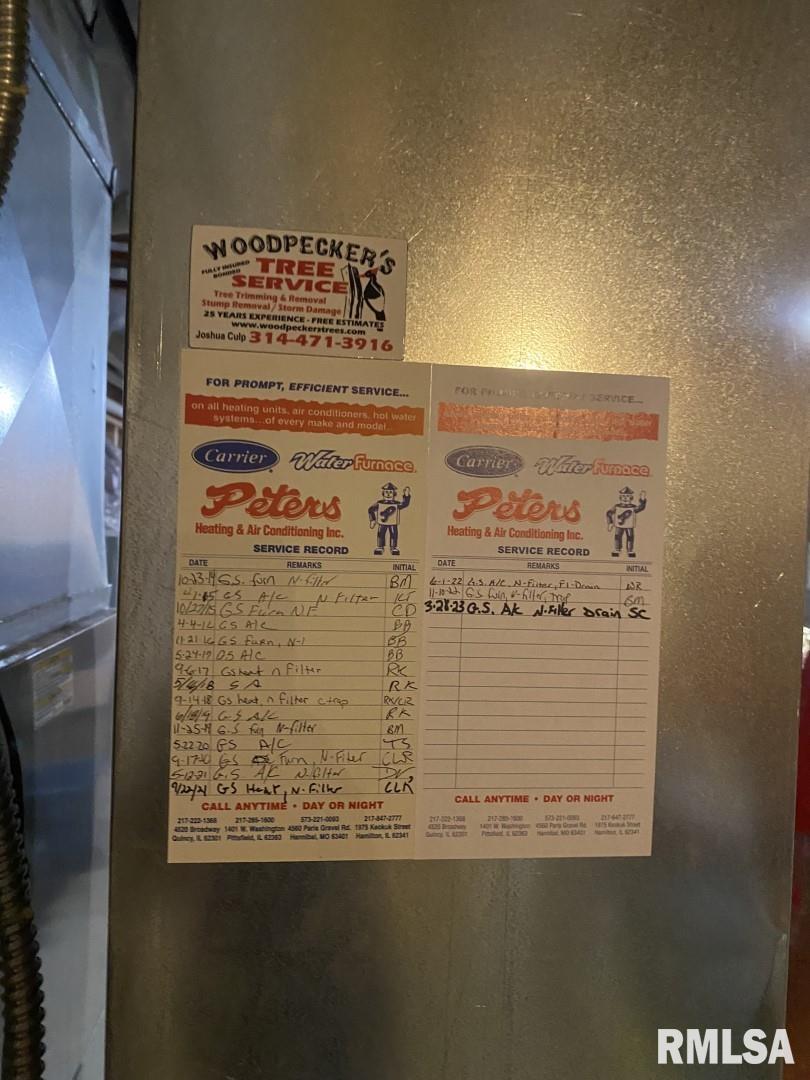 WOODPECKER'S
FULLY INSURED
BONDED
TREE
SERVICE
Tree Trimming & Removal
Stump Removal / Storm Damage
25 YEARS EXPERIENCE - FREE ESTIMATES
www.woodpeckerstrees.com
Joshua Culp 314-471-3916
FOR PROMPT, EFFICIENT SERVICE...
on all heating units, air conditioners, hot water
systems...of every make and model..
Carrier WaterFurnace
Peters
Heating & Air Conditioning Inc.
SERVICE RECORD
DATE REMARKS INITIAL
10-23-14 G.S. furn N-filter BM
GS A/C N Filter KT
10/27/15 GS Furn NF CD
4-4-16 GS A/C BB
11-21-16 GS Furn, N-1 BB
5-24-17 OS A/C BB
9-6-17 GS heat n Filter RK
5/16/18 S A RK
9-14-18 GS heat, n filter ctrap RK/CLR
6/18/19 G-S A/C RK
11-25-19 G.S furn N-filter BM
5-22-20 GS A/C TS
9-17-20 GS Furn, N-Filter CLR
5-12-21 G.S A/C N-filter DV
9/22/21 GS Heat, N-Filter CLR
CALL ANYTIME • DAY OR NIGHT
217-222-1368 217-285-1600 573-221-0093 217-847-2777
4520 Broadway 1401 W. Washington 4560 Paris Gravel Rd. 1975 Keokuk Street
Quincy, IL 62301 Pittsfield, IL 62363 Hannibal, MO 63401 Hamilton, IL 62341
FOR PROMPT, EFFICIENT SERVICE...
Carrier WaterFurnace
Peters
Heating & Air Conditioning Inc.
SERVICE RECORD
DATE REMARKS INITIAL
6-1-22 G.S. A/C, N-Filter, Fl-Drain WR
11-10-22 GS furn, N-filter, Trap BM
3-28-23 G.S. A/C N-Filter Drain SC
CALL ANYTIME • DAY OR NIGHT
217-222-1368 217-285-1600 573-221-0093 217-847-2777
4520 Broadway 1401 W. Washington 4560 Paris Gravel Rd. 1975 Keokuk Street
Quincy, IL 62301 Pittsfield, IL 62363 Hannibal, MO 63401 Hamilton, IL 62341
RMLSA